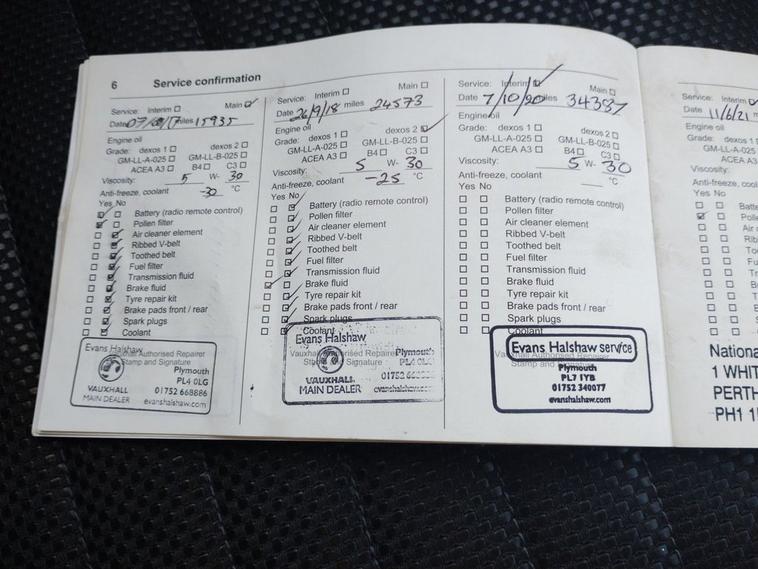 6 Service confirmation
Service: Interim Main
Date miles 15935
Engine oil
Grade: dexos 1 dexos 2
GM-LL-A-025 GM-LL-B-025
ACEA A3 B4 C3
Viscosity: 5 W- 30
Anti-freeze, coolant -30 °C
Yes No
Battery (radio remote control)
Pollen filter
Air cleaner element
Ribbed V-belt
Toothed belt
Fuel filter
Transmission fluid
Brake fluid
Tyre repair kit
Brake pads front / rear
Spark plugs
Coolant
Evans Halshaw
Authorised Repairer
Stamp and Signature
Plymouth
PL4 0LG
VAUXHALL 01752 668886
MAIN DEALER evanshalshaw.com
Service: Interim Main
Date 26/9/18 miles 24573
Engine oil
Grade: dexos 1 dexos 2
GM-LL-A-025 GM-LL-B-025
ACEA A3 B4 C3
Viscosity: 5 W- 30
Anti-freeze, coolant -25 °C
Yes No
Battery (radio remote control)
Pollen filter
Air cleaner element
Ribbed V-belt
Toothed belt
Fuel filter
Transmission fluid
Brake fluid
Tyre repair kit
Brake pads front / rear
Spark plugs
Coolant
Evans Halshaw
Vauxhall Authorised Repairer
Plymouth
PL4 0LG
VAUXHALL
MAIN DEALER evanshalshaw.com
Service: Interim Main
Date 7/10/20 miles 34387
Engine oil
Grade: dexos 1 dexos 2
GM-LL-A-025 GM-LL-B-025
ACEA A3 B4 C3
Viscosity: 5 W- 30
Anti-freeze, coolant °C
Yes No
Battery (radio remote control)
Pollen filter
Air cleaner element
Ribbed V-belt
Toothed belt
Fuel filter
Transmission fluid
Brake fluid
Tyre repair kit
Brake pads front / rear
Spark plugs
Coolant
Evans Halshaw service
Authorised Repairer
Stamp and Signature
Plymouth
PL7 1YB
01752 340077
evanshalshaw.com
Service: Interim
Date 11/6/21
Engine oil
Grade: dexos 1
GM-LL-A-025
ACEA A3
Viscosity:
Anti-freeze,
Yes No
Nationa
1 WHIT
PERTH
PH1 1